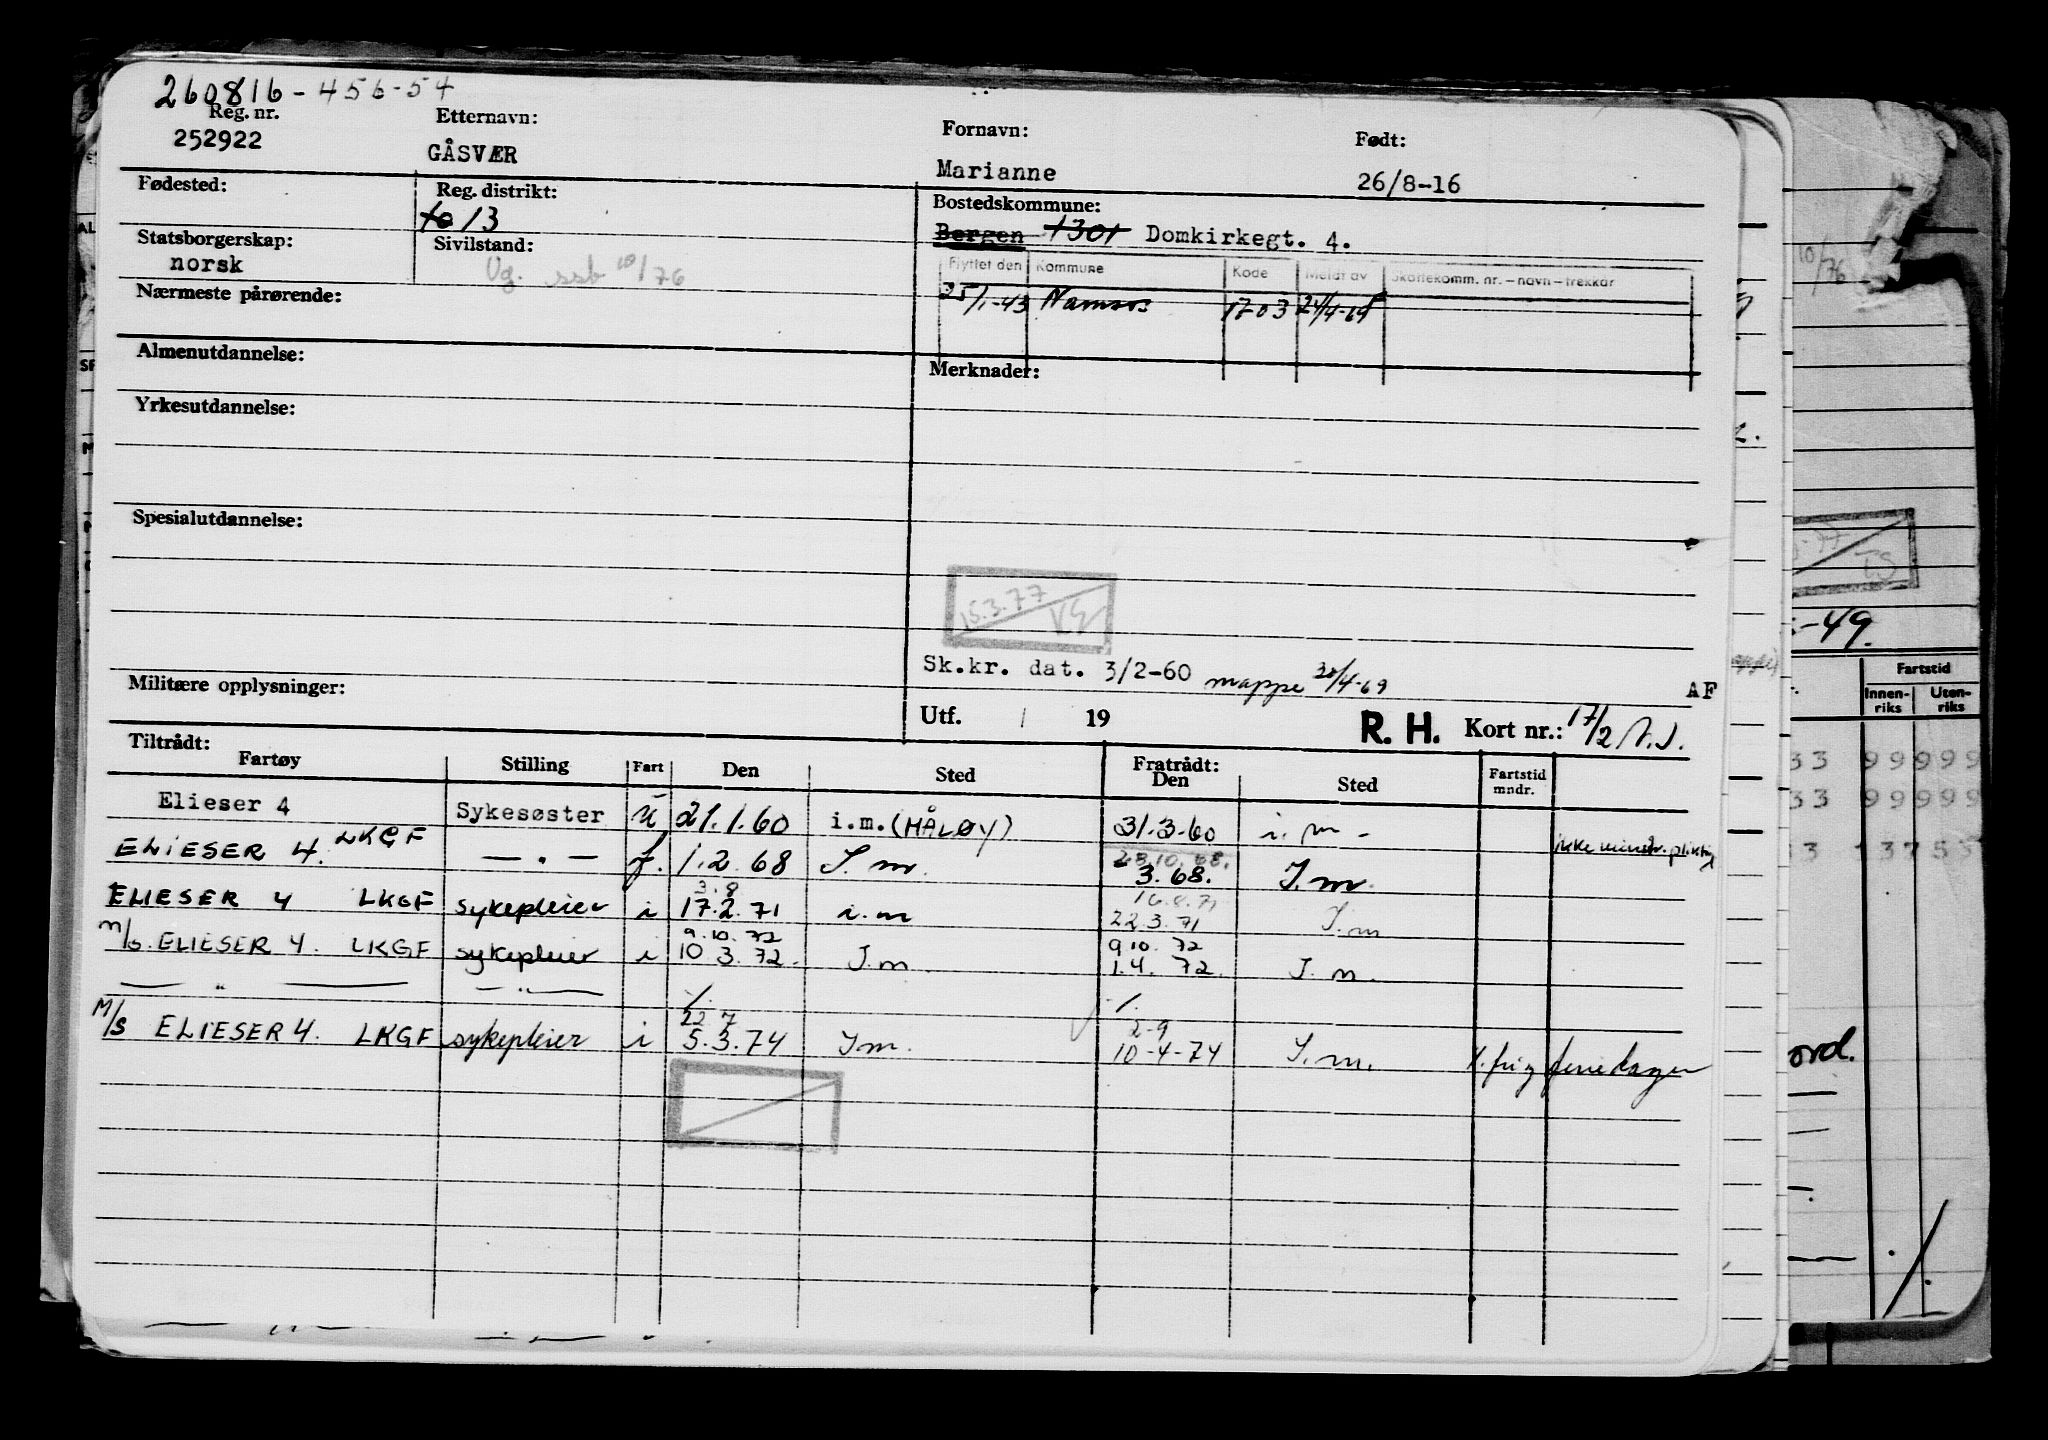 260816-456-54
Reg. nr. Etternavn: Fornavn: Født:
252922 GÅSVÆR Marianne 26/8-16
Fødested: Reg. distrikt: Bostedskommune:
13 Bergen 1301 Domkirkegt. 4.
Statsborgerskap: Sivilstand:
norsk Ug. ssb 10/76
Flyttet den Kommune Kode Meldt av Skattekomm. nr. – navn – trekkar
25/1-43 Namsos 1703 24/4-69
Nærmeste pårørende:
Almenutdannelse: Merknader:
Yrkesutdannelse:
Spesialutdannelse:
15.3.77
Sk.kr. dat. 3/2-60 mappe 30/4-69 AF
Militære opplysninger:
Utf. / 19 R. H. Kort nr.: 17/2
Tiltrådt: Fratrådt:
Fartøy Stilling Fart Den Sted Den Sted Fartstid mndr.
Elieser 4 Sykesøster u 21.1.60 i.m. (MÅLØY) 31.3-60 i.m.
ikke mønstr. pliktig
ELIESER 4. LKGF — " — f. 1.2.68 I.m. 28.10.68. 3.68. I.m.
3.8 16.8.71
ELIESER 4 LKGF sykepleier i 17.2.71 i.m 22.3.71 I.m
9.10.72 9 10. 72
M/S. ELIESER 4. LKGF sykepleier i 10 3.72. I.m. 1.4. 72. I.m.
— " — — " — /. /.
22 7 2-9
M/S ELIESER 4. LKGF sykepleier i 5.3.74 I.m. 10-4-74 I.m. feriedager
-49.
Fartstid
Innenriks Utenriks
33 99999
33 99999
ord.